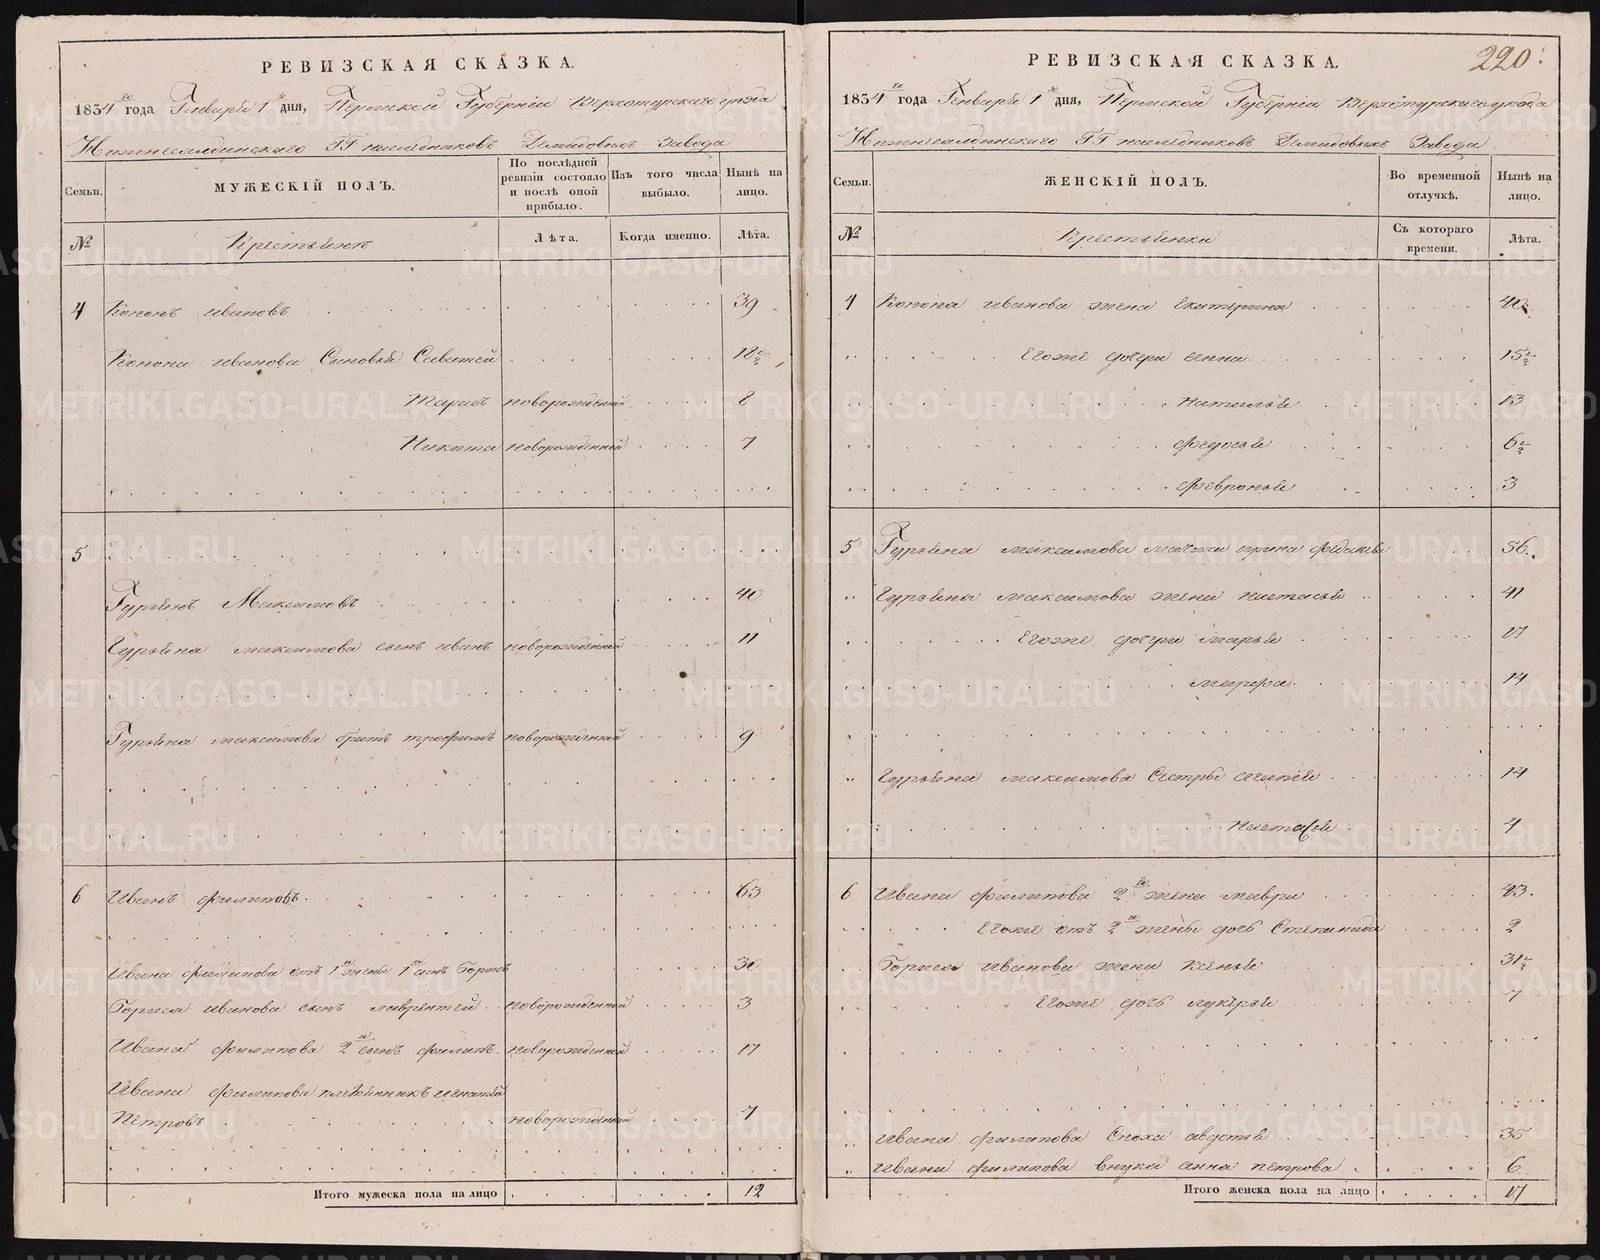 РЕВИЗСКАЯ СКАЗКА.
1834го года Генваря 1го дня, Пермской Губернiи Верхотурскаго уезда
Нижнесалдинскаго ГГ наследниковъ Демидовыхъ Завода
Семьи.
МУЖЕСКIЙ ПОЛЪ.
По послѣдней ревизiи состояло и послѣ оной прибыло.
Изъ того числа выбыло.
Нынѣ на лицо.
№
Крестьянъ
Лѣта.
Когда именно.
Лѣта.
4 Кононъ Ивановъ 39
Конона Иванова Сыновья Саватей 18½
Тарасъ новорожденной 8
Никита новорожденной 7
5
Гурьянъ Максимовъ 40
Гурьяна Максимова сынъ Иванъ новорожденной 11
Гурьяна Максимова братъ Трофимъ новорожденной 9
6 Иванъ Филиповъ 63
Ивана Филипова отъ 1й жены 1й сынъ Борисъ 30
Бориса Иванова сынъ Лаврентей новорожденной 3
Ивана Филипова 2й сынъ Филипъ новорожденной 17
Ивана Филипова племянникъ Игнатей
Петровъ новорожденной 7
Итого мужеска пола на лицо 12
220
РЕВИЗСКАЯ СКАЗКА.
1834го года Генваря 1го дня, Пермской Губернiи Верхотурскаго уезда
Нижнесалдинскаго ГГ наследниковъ Демидовыхъ Завода
Семьи.
ЖЕНСКIЙ ПОЛЪ.
Во временной отлучкѣ.
Нынѣ на лицо.
№
Крестьянки
Съ котораго времени.
Лѣта.
4 Конона Иванова жена Екатерина 40
Егоже дочери Анна 15½
Наталья 13
Федосья 6½
Февронья 3
5 Гурьяна Максимова мачиха Ирина 56
Гурьяна Максимова жена Настасья 41
Егоже дочери Марья 17
Марфа 14
Гурьяна Максимова Сестры Агапея 14
Настасья 4
6 Ивана Филипова 2я жена Мавра 43
Егоже отъ 2й жены дочь Степанида 2
Бориса Иванова жена Ксенья 31½
Егоже дочь Лукерья 7
Ивана Филипова Сноха Авдотья 35
Ивана Филипова внука Анна Петрова 6
Итого женска пола на лицо 17
METRIKI.GASO-URAL.RU